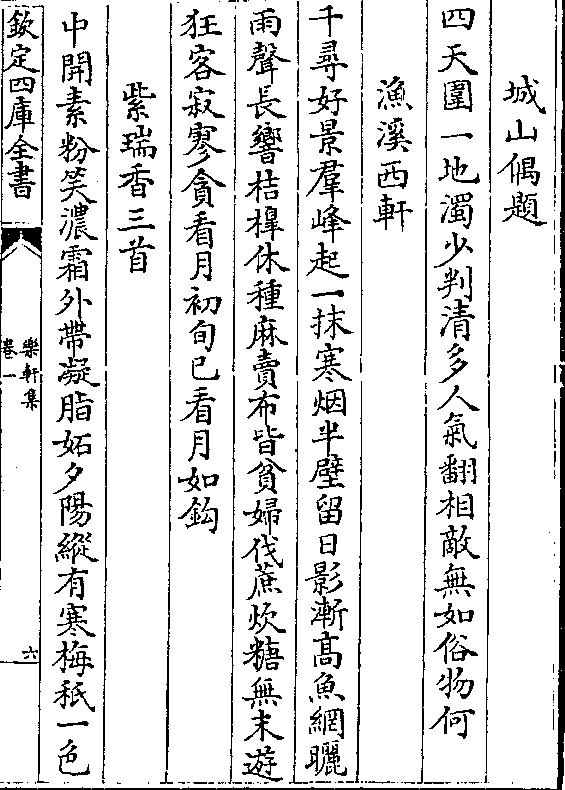 城山偶題
四天圍一地濁少判清多人氣翻相敵無如俗物何
漁溪西軒
千尋好景羣峰起一抹寒烟半壁留日影漸髙魚網曬
雨聲長響桔橰休種麻賣布皆貧婦伐蔗炊糖無末遊
狂客寂寥貪看月初旬已看月如鈎
紫瑞香三首
中開素粉笑濃霜外帶凝脂妬夕陽縱有寒梅秖一色
欽定四庫全書
樂軒集
卷一
六